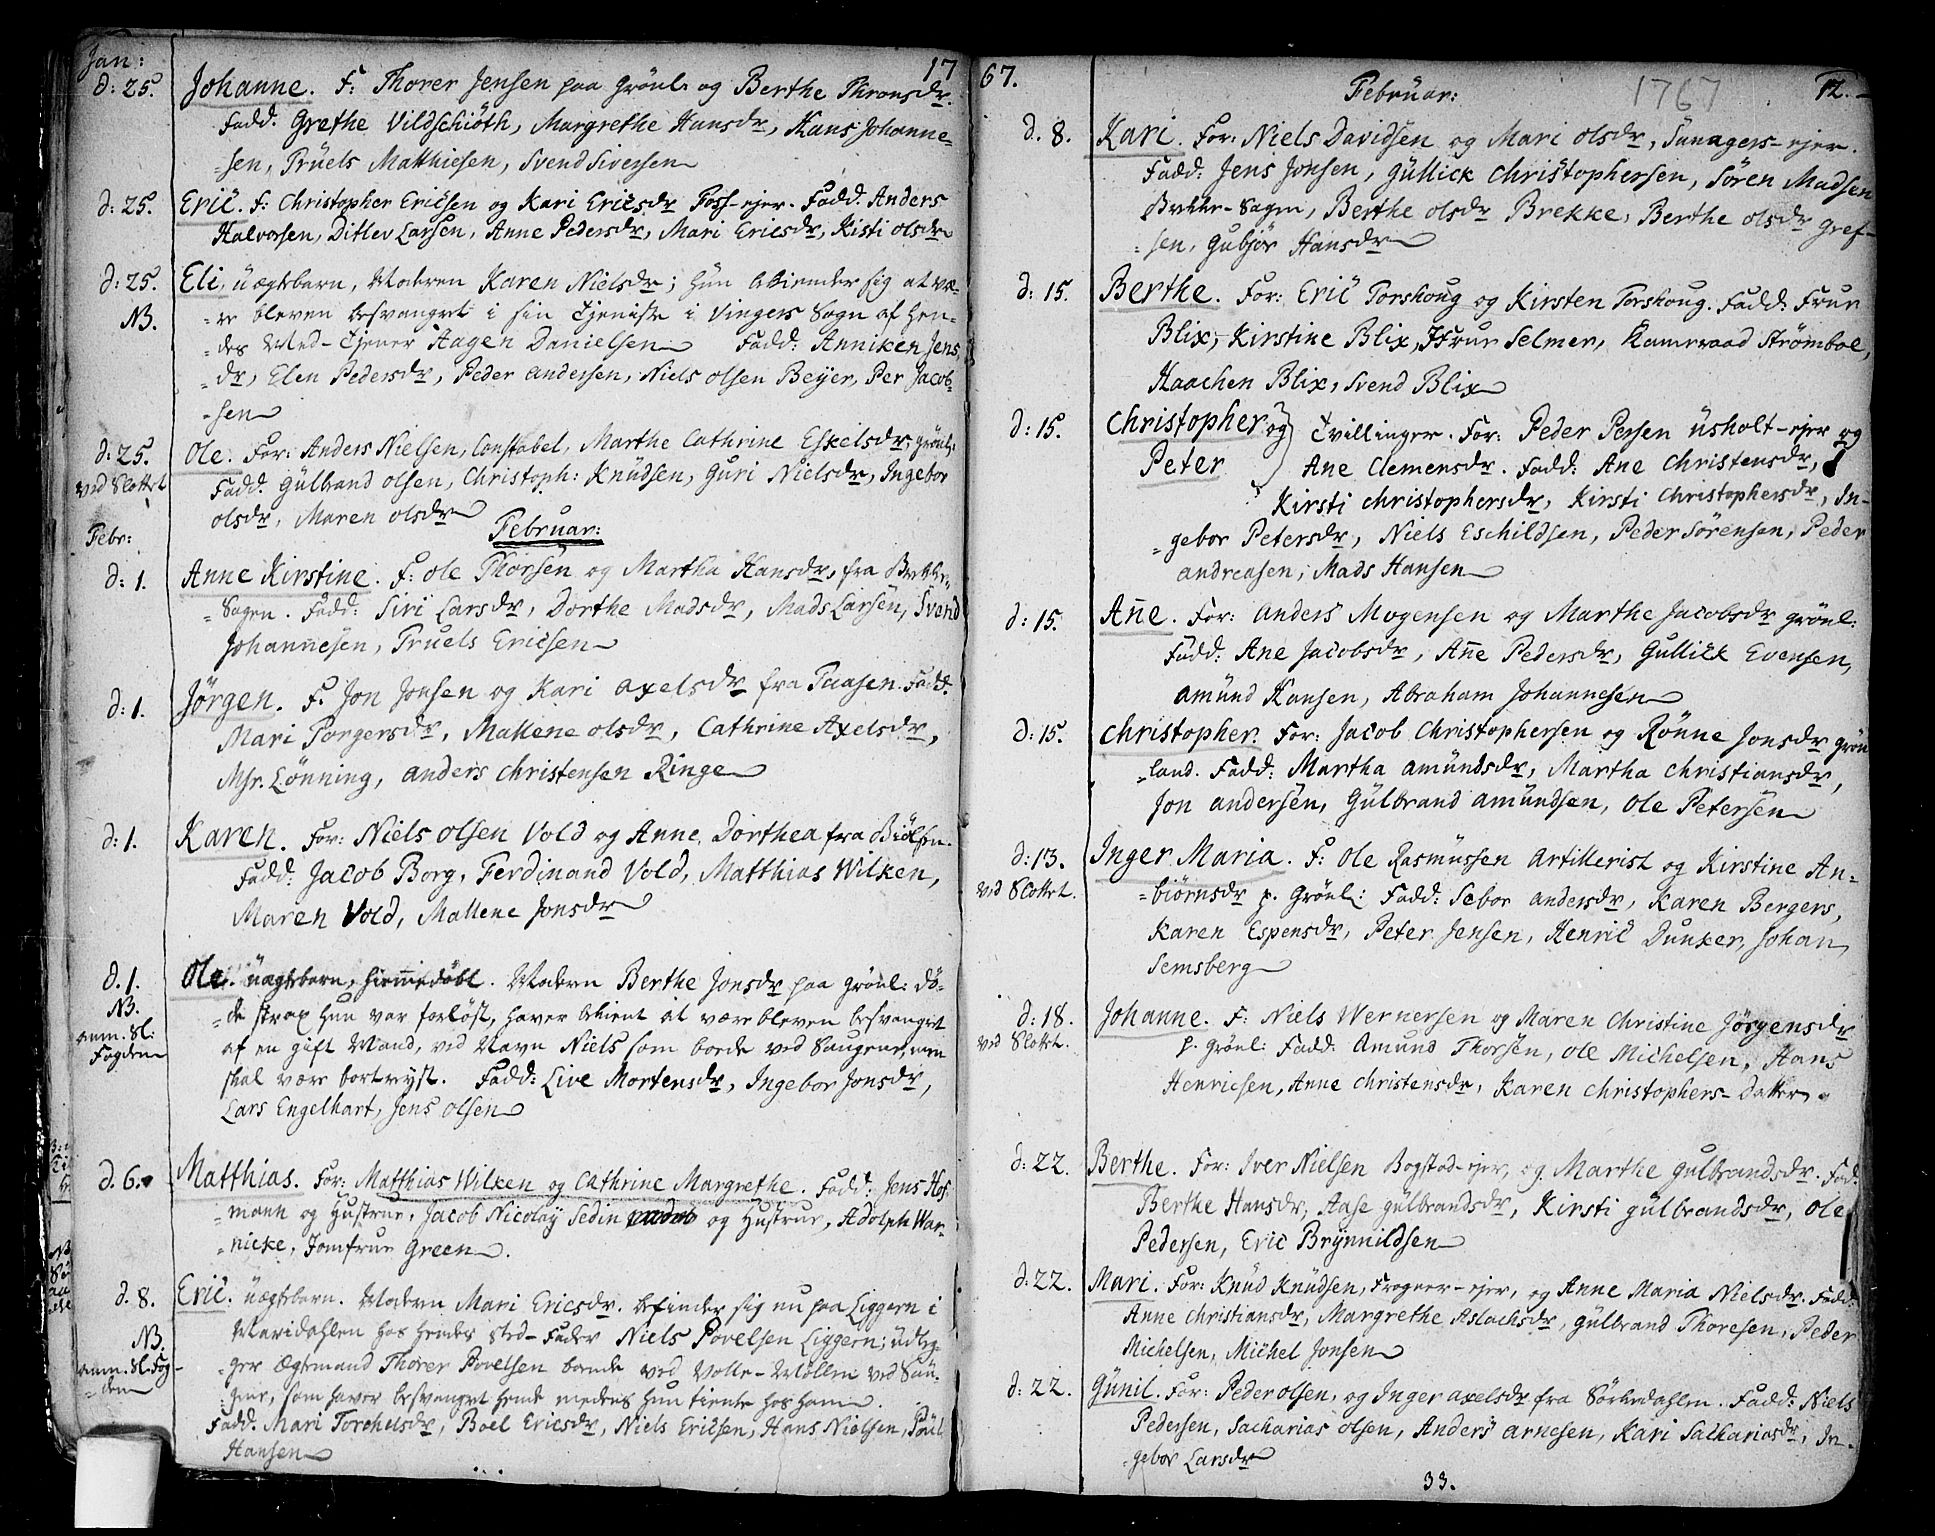 Jan: 17
d: 25. Johanne. F: Thorer Jensen paa Grönl. og Berthe Thronsdr.
Fadd. Grethe Vildschiöth, Margrethe Hansdr, Hans Johanne-
-sen, Truels Matthiesen, Svend Siversen
d: 25. Eric. F: Christopher Ericsen og Kari Ericsdr Foss-ejer. Fadd. Anders
Halvorsen, Ditlev Larsen, Anne Pedersdr, Mari Ericsdr, Kisti olsdr
d: 25. Eli, uægtebarn, Moderen Karen Nielsdr; hun bekiender sig at væ-
NB. -re bleven besvangret i sin Tjeniste i Vingers Sogn af hen-
-des Med-Tjener Aagen Danielsen Fadd: Anniken Jens
-dr, Elen Pedersdr, Peder Andersen, Niels olsen Beyer, Per Jacob-
-sen
d: 25. Ole. For: Anders Nielsen, Constabel, Marthe Cathrine Eskelsdr, Grönl:
ved Slottet Fadd. Gülbrand olsen, Christoph: Knüdsen, Guri Nielsdr, Ingebor
olsdr, Maren olsdr
Febr: Februar:
d: 1. Anne Kirstine. F: Ole Thorsen og Martha Hansdr, fra Bekker-
-Hagen. Fadd: Siri Larsdr, Dorthe Madsdr, Mads Larsen, Svend
Johannesen, Truels Ericsen
d: 1. Jörgen. F. Jon Jonsen og Kari Axelsdr fra Taasen. Fadd.
Mari Torgersdr, Mallene olsdr, Cathrine Axelsdr,
Msr. Lönning, Anders Christensen Ringe
d: 1. Karen. For: Niels Olsen Vold og Anne Dorthea fra Biölsen.
Fadd: Jacob Borg, Ferdinand Vold, Matthias Wilken,
Maren Vold, Mallene Jonsdr
d. 1. Ole. uægtebarn, hiemmedöbt. Modern Berthe Jonsdr paa Grönl: dö-
NB. -de strax hun var forlöst, haver bekient at være bleven besvangret
anm. Sl: af en gift Mand, ved Navn Niels som boede ved Saugene, men
Fogden skal være bortreyst. Fadd: Live Mortensdr, Ingebor Jonsdr,
Lars Engelhart, Jens olsen
d. 6. Matthias. For: Matthias Wilken og Cathrine Margrethe. Fadd: Jens Hof-
-mann og Hustrue, Jacob Nicolay Sedin og Hustrue, Adolph War-
-nicke, Jomfrue Green.
d. 8. Eric. uægtebarn. Modern Mari Ericsdr. befinder sig nu paa Liggern i
Maridahlen hos hendes Sted-Fader Niels Povelsen Liggern; udleg-
NB. -ger Ægtemand Thorer Povelsen boende ved Volle-Möllen ved Sau-
anm. Sl. Fog- -gene, som haver besvangret hende medens hun tiente hos ham.
-den Fadd. Mari Torchelsdr, Boel Ericsdr, Niels Ericsen, Hans Nielsen, Poül
Hansen
67. Februar: 1767 12.
d. 8. Kari. For: Niels Davidsen og Mari olsdr, Tanagers-ejer.
Fadd: Jens Jonsen, Güllick Christophersen, Sören Madsen
Bekke-Hagen, Berthe olsdr Brekke, Berthe olsdr Gref-
-sen, Gubjör Hansdr
d: 15. Berthe. For: Eric Torshoug og Kirsten Torshoug. Fadd: Frue
Blix, Kirstine Blix, Frue Selmer, Kammeraad Strömboe,
Haachen Blix, Svend Blix
d: 15. Christopher og Tvillinger. For: Peder Persen Üsholt-ejer og
Peter Ane Clemensdr. Fadd: Ane Christensdr,
Kirsti Christophersdr, Kirsti Christophersdr, In-
-gebor Petersdr, Niels Eschildsen, Peder Sörensen, Peder
Andreasen, Mads Hansen
d: 15. Añe. For: Anders Mogensen og Marthe Jacobsdr Grönl:
Fadd: Ane Jacobsdr, Añe Pedersdr, Gullick Evensen,
Amünd Hansen, Abraham Johannesen
d: 15. Christopher. For: Jacob Christophersen og Rönne Jonsdr Grön
-land. Fadd: Martha Amündsdr, Martha Christiansdr,
Jon Andersen, Gülbrand Amündsen, Ole Petersen
d: 13. Inger Maria. F: Ole Rasmussen Artillerist og Kirstine An-
ved Slottet. -biörnsdr p. Grönl: Fadd: Sebor Andersdr, Karen Bergers,
Karen Espensdr, Peter Jensen, Henric Dunker, Johan
Semsberg
d: 18. Johanne. F: Niels Wernersen og Maren Christine Jörgensdr
ved Slottet. p. Grönl: Fadd: Amund Thorsen, Ole Michelsen, Hans
Henricsen, Anne Christensdr, Karen Christophers-Datter.
d: 22. Berthe. For: Iver Nielsen Bogstad-ejer, og Marthe Gulbrandsdr. Fad:
Berthe Hansdr, Aase Gülbrandsdr, Kirsti Gülbrandsdr, Ole
Pedersen, Eric Brynnildsen
d: 22. Mari. For: Knüd Knüdsen, Frogner-ejer, og Anne Maria Nielsdr. Fadd:
Anne Christiansdr, Margrethe Aslachsdr, Gülbrand Thoresen, Peder
Michelsen, Michel Jonsen
d: 22. Günil. For: Peder olsen, og Inger Axelsdr fra Sörkedahlen. Fadd: Niels
Pedersen, Sacharias Olsen, Anders Arnesen, Kari Sachariasdr, In-
-gebor Larsdr
33.